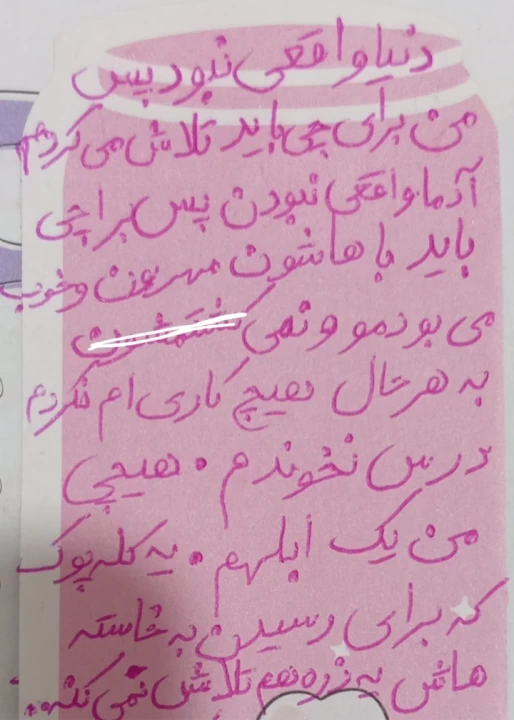 دنیا واقعی نبود پس
من برای چی باید تلاش می کردم
آدما واقعی نبودن پس برا چی
باید باهاشون مهربون و خوب
می بودم و نمی کشتمشون
به هر حال هیچ کاری ام نکردم
درس نخوندم. هیچی
من یک ابلهم. یه کله پوک
که برای رسیدن به خاسته
هاش یه ذره هم تلاش نمی کنه..